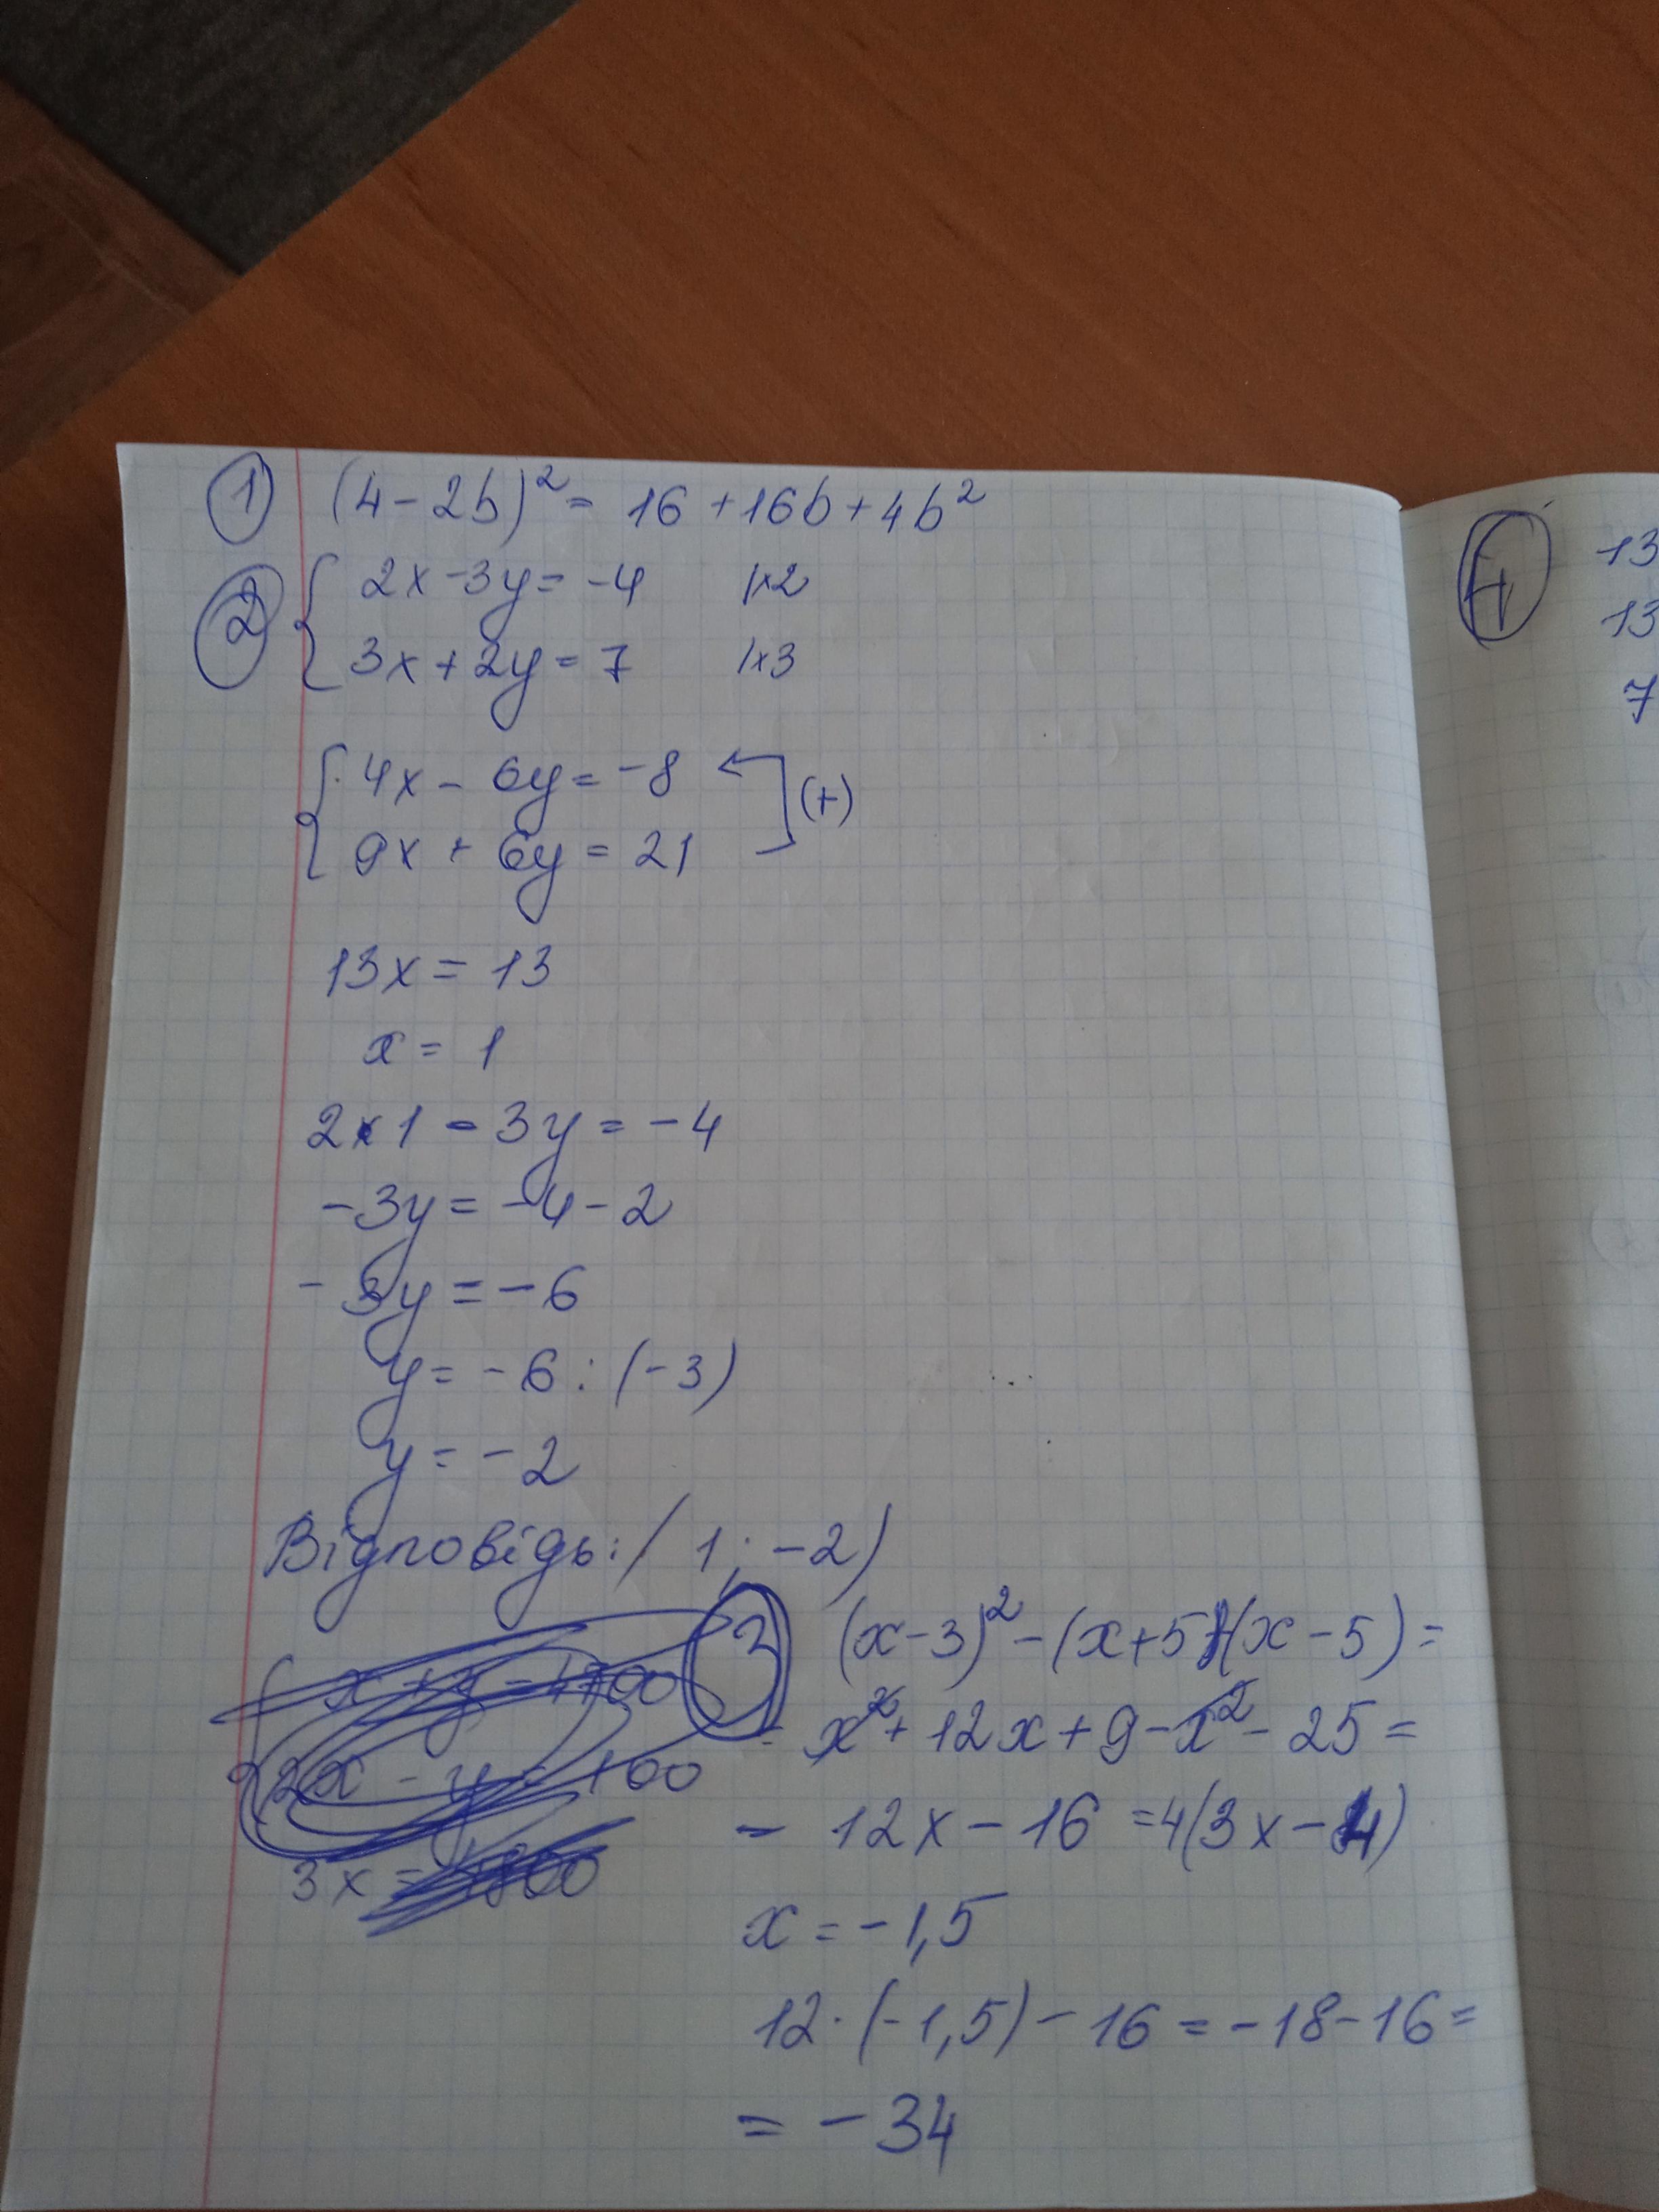 1 (4-2b)² = 16+16b+4b²
2 { 2x-3y=-4 |×2
3x+2y=7 |×3
{ 4x-6y=-8 (+)
9x+6y=21
13x=13
x=1
2×1-3y=-4
-3y=-4-2
-3y=-6
y=-6:(-3)
y=-2
Відповідь:(1;-2)
{ x+y=
2x-y=100
3x=1800
3 (x-3)²-(x+5)(x-5)=
= x²+12x+9-x²-25=
= 12x-16 =4(3x-4)
x=-1,5
12·(-1,5)-16=-18-16=
=-34
4 13
13
7